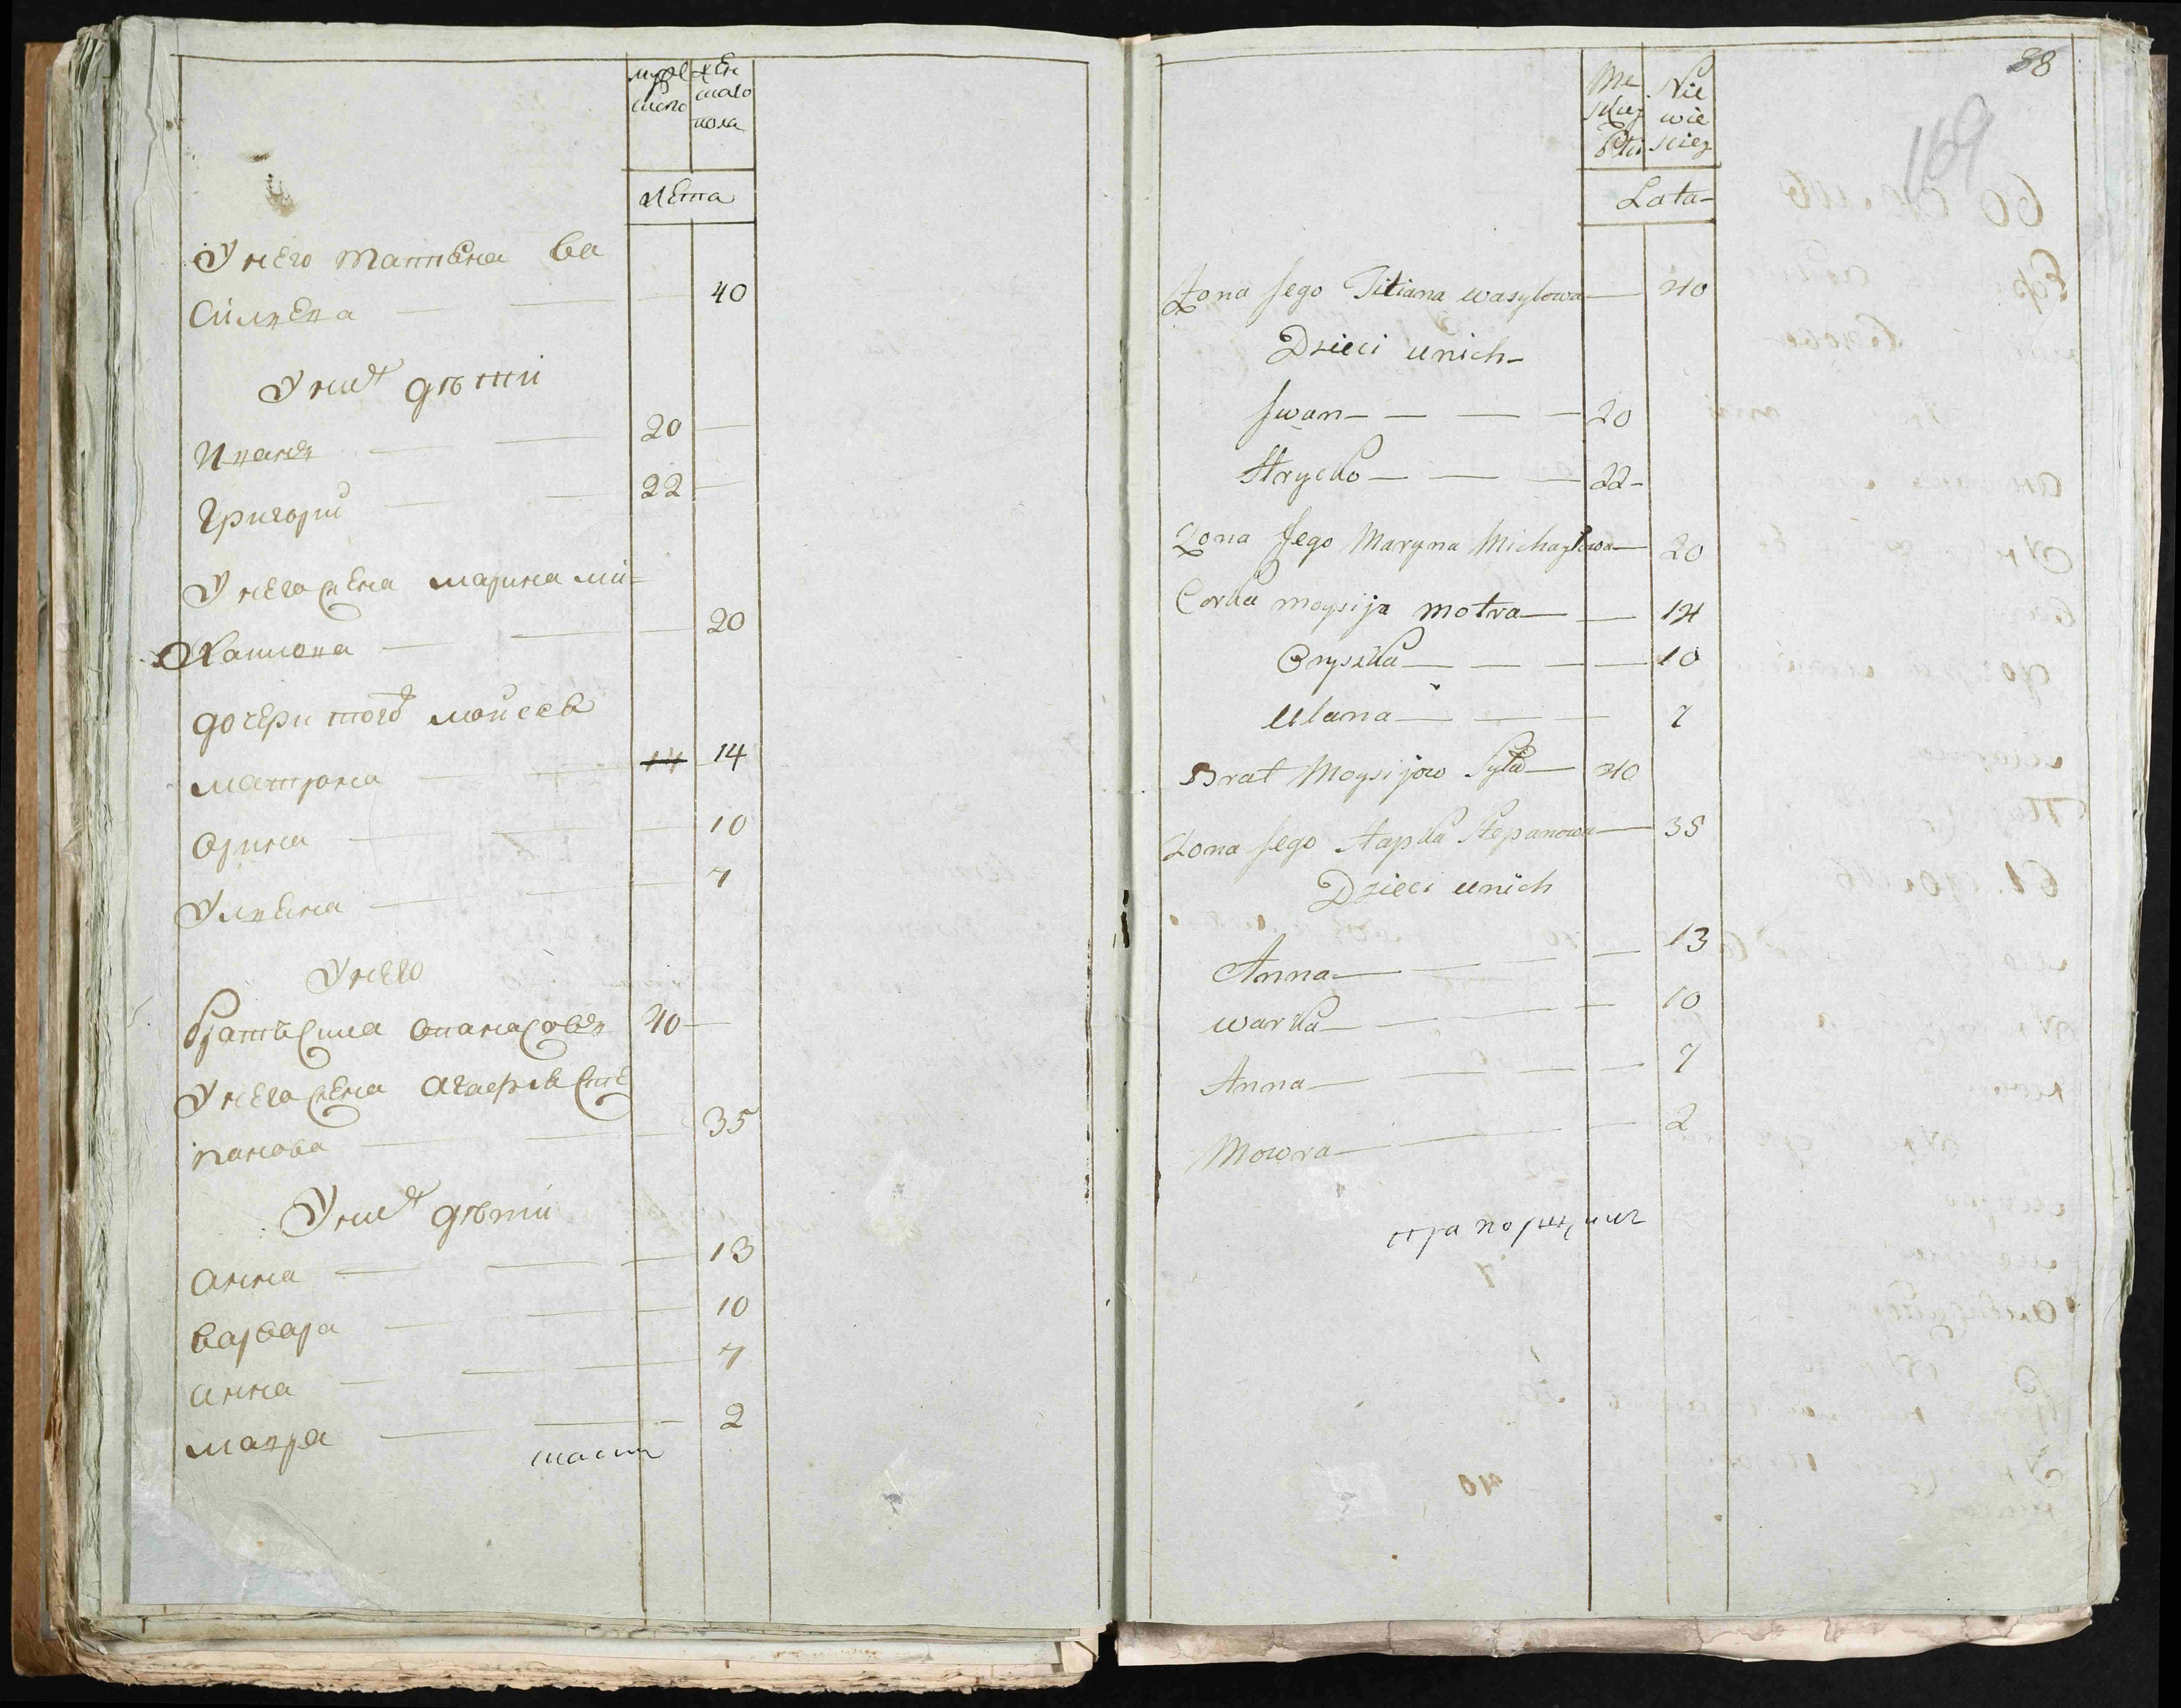 муже
ска
жен
скаго
пола
Лета
У него Татиена Ва
силиева 40
У них дѣти
Иванъ 20
Григорий 22
У него жена марина ми=
хаилова 20
дочери того моисея
матрона 14 14
орина 10
Улиена 7
У него
братъ Сила опанасовъ 40
У него жена агафия Сте
панова 35
У них дѣти
анна 13
варвара 10
анна 7
мавра 2
Me
skiej
Płci
Nie
wie
sciey
Lata
38
169
Zona Jego Titiana wasylowa 40
Dzieci unich
Jwan 20
Hrycko 22
Zona Jego Maryna Michayłowa 20
Corka moysija motra 14
Oryszka 10
Ulana 7
Brat Moysijow Syła 40
Zona Jego Hapka Stepanowa 35
Dzieci unich
Anna 13
warka 10
Anna 7
Mowra 2
прапорщик